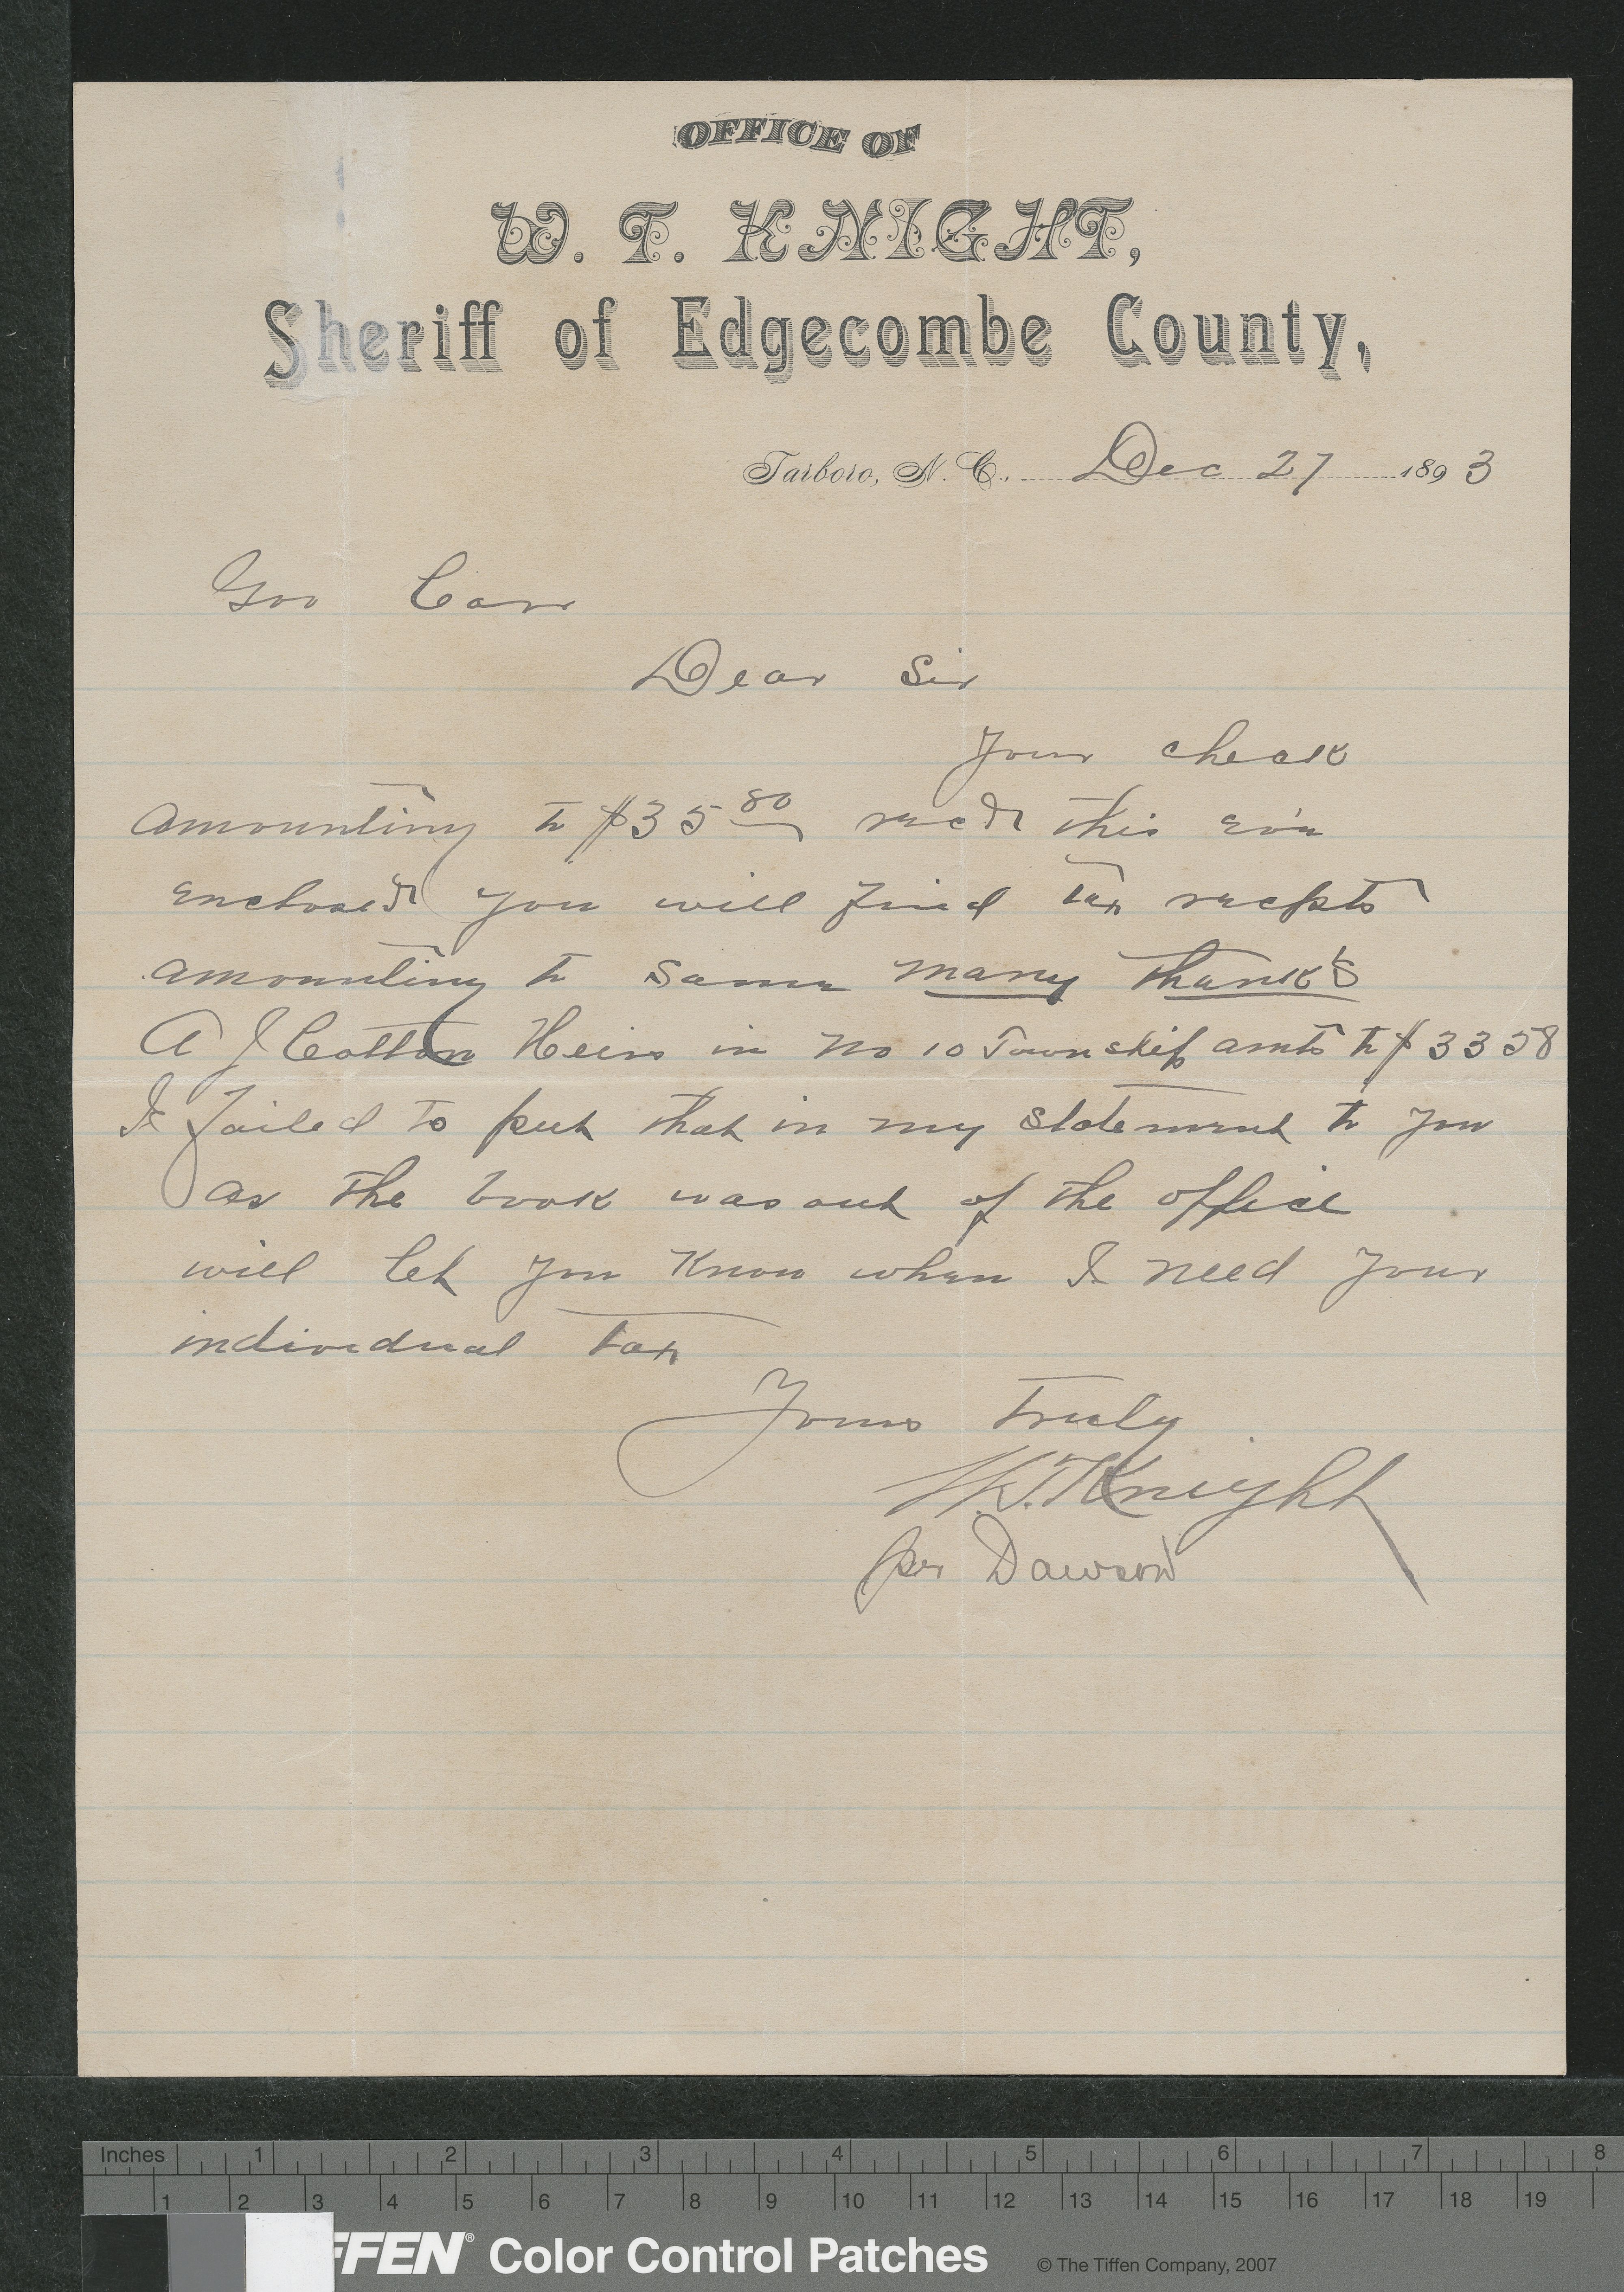 OFFICE OF
W. T. KNIGHT,
Sheriff of Edgecombe County,
Tarboro, N. C., Dec 27 1893
Gov Carr
Dear Sir
Your check
amounting to $35 80 recd this ev'n
enclosed you will find tax recpts
amounting to same many thank's
A J Cotton Heirs in No 10 Township amts to $33 58
I failed to put that in my statement to you
as the book was out of the office
will let you know when I need your
individual tax
Yours truly
W.T. Knight
per Dawson
Inches 1 2 3 4 5 6 7 8
1 2 3 4 5 6 7 8 9 10 11 12 13 14 15 16 17 18 19
FFEN® Color Control Patches © The Tiffen Company, 2007